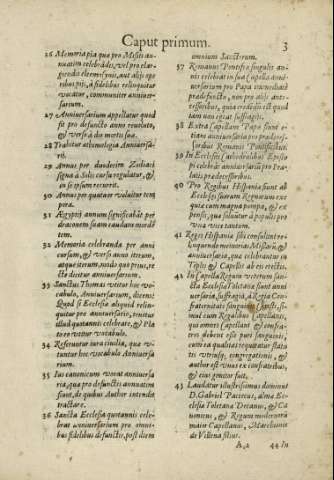 Caput primum.
3
26 Memoria pia quæ pro Missis an-
nuatim celebrādis, vel pro elar-
giendis eleemosynis, aut alijs ope
ribus pijs, à fidelibus relinquitur
vocatur, communiter anniuer-
sarium.
27 Anniuersarium appellatur quod
fit pro defuncto anno reuoluto,
& versè à die mortis suæ.
28 Traditur ethimologia Anniuersa-
rij.
29 Annus per duodecim Zodiaci
signa à Solis cursu regulatur, &
in se ipsum recurrit.
30 Annus per quatuor voluitur tem
pora.
31 Ægyptij annum significabāt per
draconem suam caudam mordē
tem.
32 Memoria celebranda per anni
cursum, & versi anni iterum,
atque iterum, modo quo prius, re
cte dicitur anniuersarium.
33 Sanctus Thomas vtitur hoc vo-
cabulo, Anniuersarium, dicens:
Quod si Ecclesia aliquid relin-
quatur pro anniuersario, tenitur
illud quotannis celebrare, & Pla
to eo vtitur vocabulo.
34 Referuntur iura ciuilia, quæ v-
tuntur hoc vocabulo Anniuersa
rium.
35 Ius canonicum vocat anniuersa
ria, quæ pro defunctis annuatim
fiunt, de quibus Author intendit
tractare.
36 Sancta Ecclesia quotannis cele-
brat anniuersarium pro omni-
bus fidelibus defunctis, post diem
omnium Sanctorum.
37 Romanus Pontifex singulis an-
nis celebrat in sua Capella anni-
uersarium pro Papa immediatè
prædefuncto, non pro alijs ante-
cessoribus, quia credidit ecct quod
iam non egeat suffragijs.
38 Extra Capellam Papæ fiunt e-
tiam anniuersaria pro prædeces-
soribus Romanis Pontificibus.
39 In Ecclesijs Cathedralibus Episco
pi celebrāt anniuersariū pro Præ-
latis prædecessoribus.
40 Pro Regibus Hispaniæ sunt ab
Ecclesijs suorum Regnorum exe
quiæ cum magna pompa, & ex
pensis, quæ soluitur à populis pro
viua vice tantum.
41 Reges Hispaniæ sibi consulunt re-
linquendo memorias Missarū, &
anniuersaria, quæ celebrantur in
Teplis & Capellis ab eis erectis.
42 In Capella Regum veterum san-
ctæ Ecclesiæ Toletanæ sunt anni
uersaria, suffragia, à Regia Con
fraternitate
mul cum Regalibus Capellanis,
qui omnes Capellani & confra-
tres debent esse puri sanguinis,
cum ea qualitas requiratur statu
tis vtriusq; congregationis, &
author est vnus ex confratribus,
& eius genitor fuit.
43 Laudatur illustrissimus dominus
D. Gabriel Pacecus, almæ Ec-
clesiæ Toletanæ Decanus, & Ca
nonicus, & Regum modernorū
maior Capellanus, Marchionis
de Villena filius.
A 2
44 In